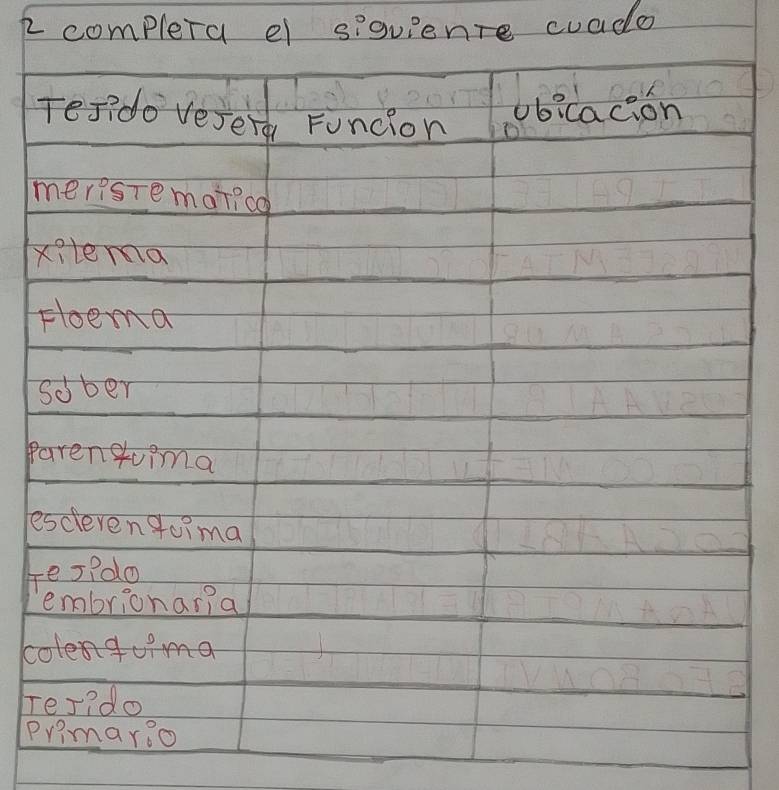 2 completa el siguiente cuado
Tejido vejera Funcion Ubicación
meristematico
xilema
Floema
súber
Parenquima
esclerenquima
Tejido
embrionaria
colenquima
Tejido
Primario